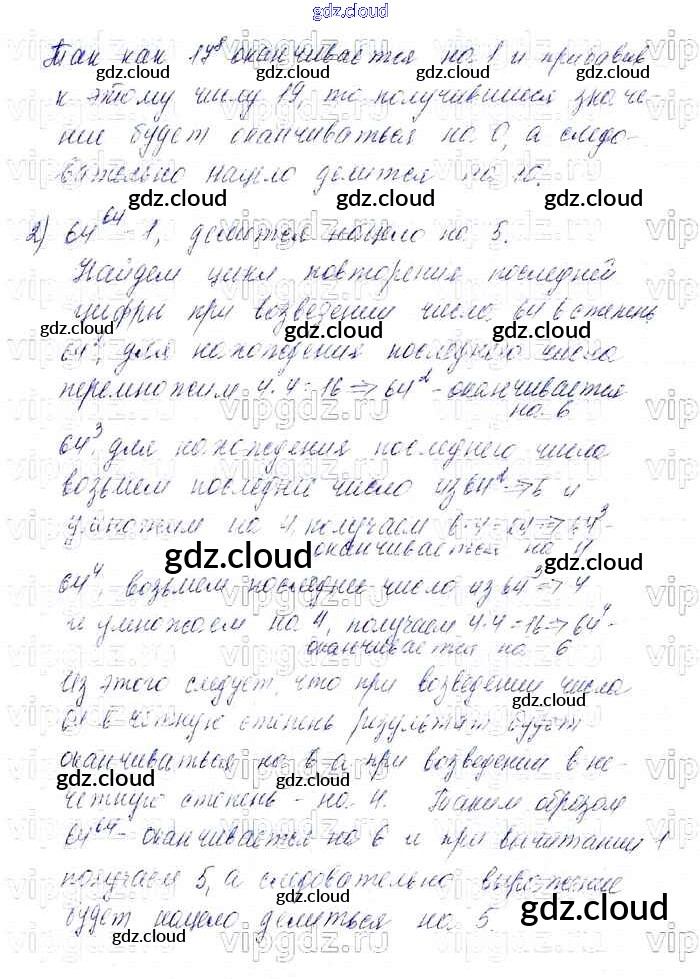 gdz.cloud
Так как 17⁸ оканчивается на 1 и прибавив
к этому числу 19, то получившиеся значе-
ние будет оканчиваться на 0, а следо-
вательно нацело делится на 10.
2) 64⁶⁴ - 1, делится нацело на 5.
Найдем цикл повторения последней
цифры при возведении числа 64 в степень
64², для нахождения последнего числа
перемножим 4·4=16 => 64² - оканчивается
на 6
64³, для нахождения последнего числа
возьмем последнее число из 64² => 6 и
умножим на 4, получаем 6·4=24 => 64³-
оканчивается на 4
64⁴, возьмем последнее число из 64³ => 4
и умножаем на 4, получаем 4·4=16 => 64⁴-
оканчивается на 6
Из этого следует, что при возведении числа
64 в четную степень результат будет
оканчиваться на 6 а при возведении в не-
четную степень - на 4. Таким образом
64⁶⁴ - оканчивается на 6 и при вычитании 1
получаем 5, а следовательно выражение
будет нацело делиться на 5.